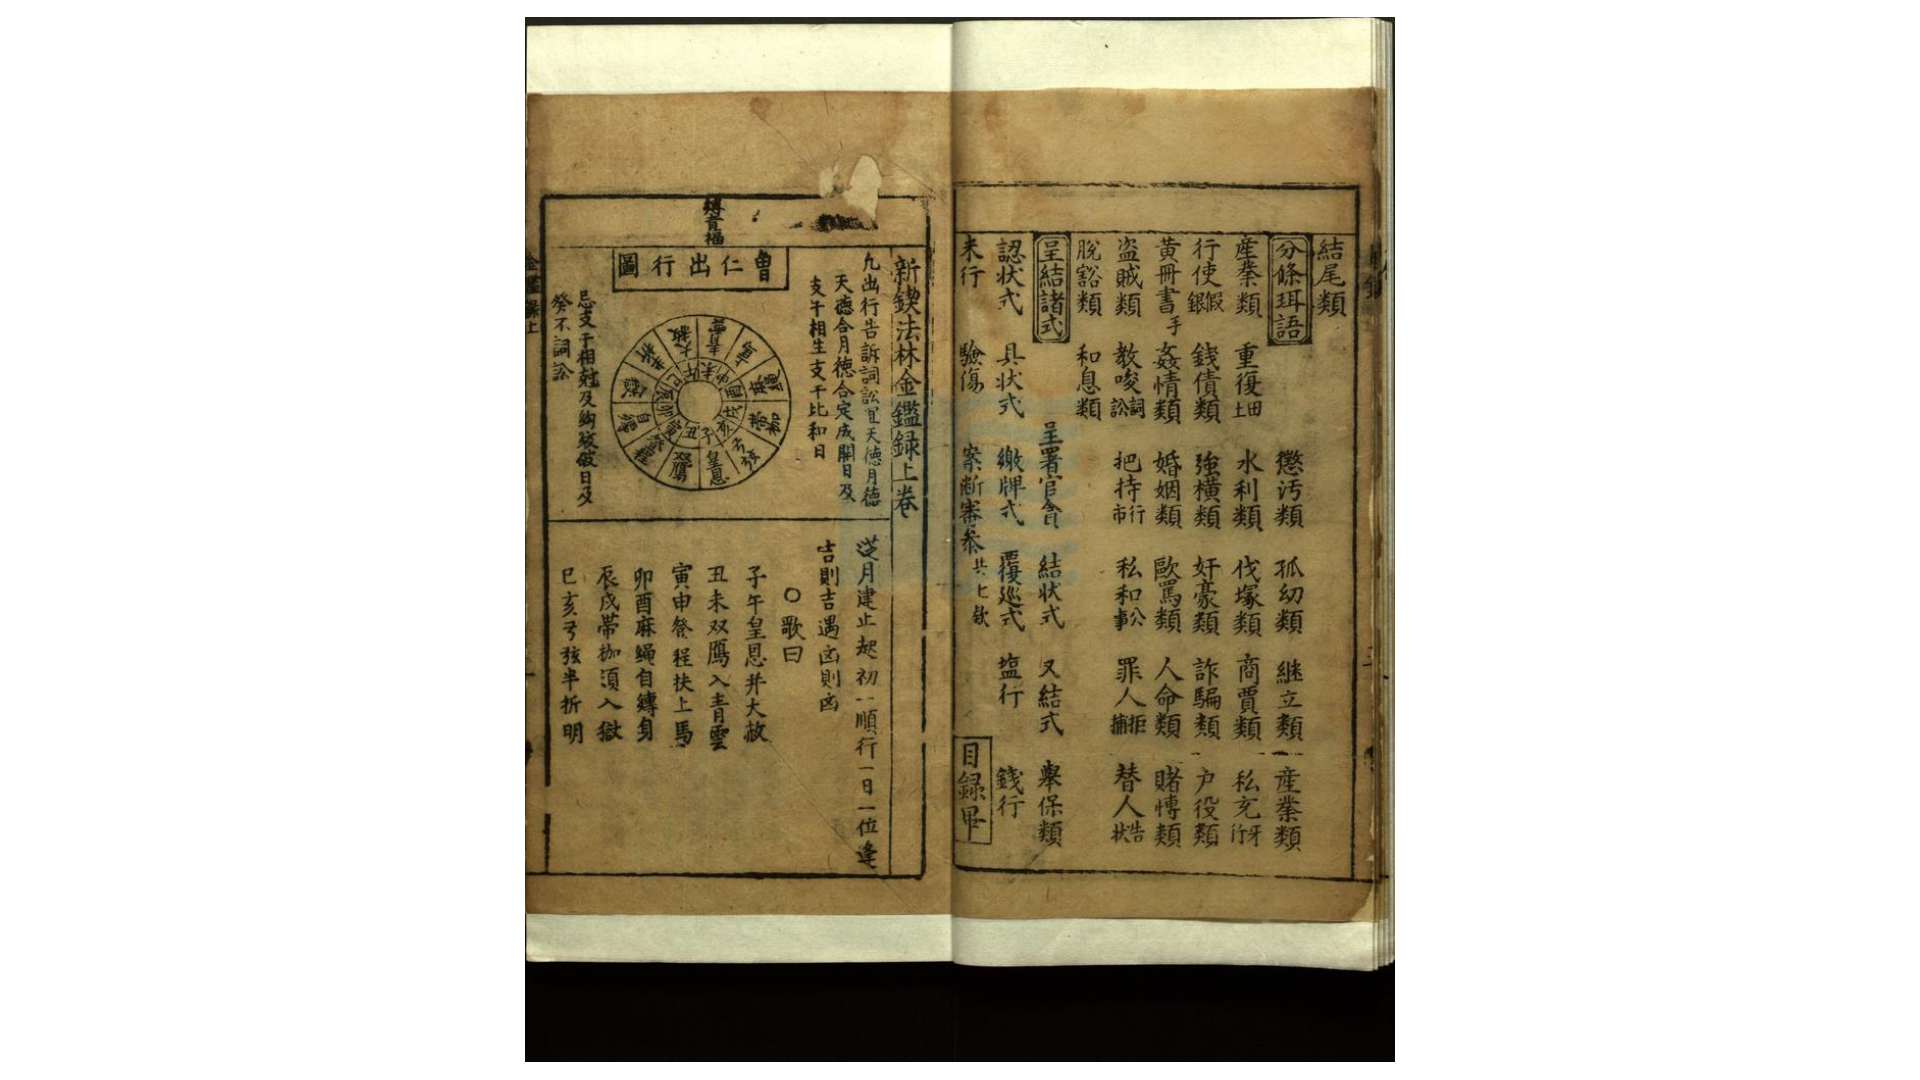 結尾類
分條珥語
懲汚類 孤幼類 継立類 産業類
産業類 重復土田 水利類 伐塚類 商賈類 私充牙行
行使假銀 錢債類 強横類 奸豪類 詐騙類 户役類
黄冊書手 姦情類 婚姻類 歐罵類 人命類 賭愽類
盗賊類 教唆詞訟 把持行市 私和公事 罪人拒捕 替人告状
脱豁類 和息類
呈結諸式
呈署官會 結状式 又結式 舉保類
認状式 具状式 繳牌式 覆廵式 塩行 錢行
未行 驗傷 案断審参 共七欵
目録畢
新鍥法林金鑑録上卷
曾仁出行圖
凢出行告訴詞訟宜天德月德
天德合月德合定成開日及
支干相生支干比和日
青雲 馬 麻繩 帶枷 弓弦 皇恩 双鷹 祭程 自縛 獄 折半 大赦
子 丑 寅 卯 辰 巳 午 未 申 酉 戌 亥
忌支干相尅及絞破日及
癸不詞訟
従月建止起初一順行一日一位逢
吉則吉遇凶則凶
○歌曰
子午皇恩并大赦
丑未双鷹入青雲
寅申祭程扶上馬
卯酉麻繩自縛身
辰戌帯枷須入獄
巳亥弓弦半折明
金鑑録上